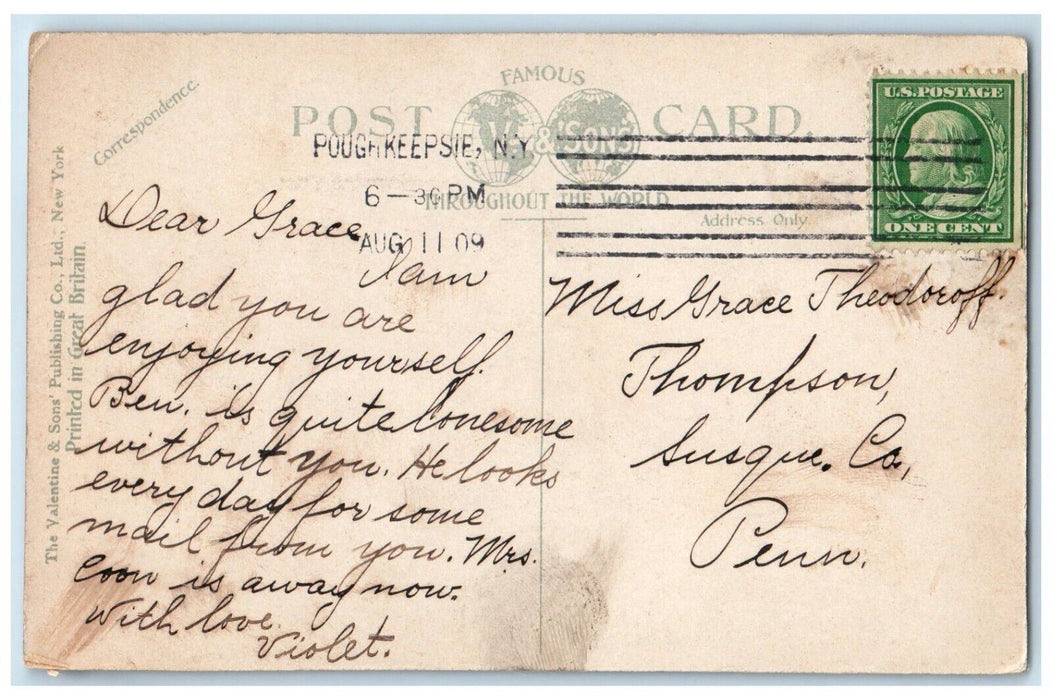 Correspondence.
FAMOUS
POST CARD.
V. & SONS
THROUGHOUT THE WORLD
Address Only.
The Valentine & Sons' Publishing Co., Ltd., New York
Printed in Great Britain
POUGHKEEPSIE, N.Y
6-30 PM
AUG 11 09
U.S. POSTAGE
ONE CENT
Dear Grace
I am
glad you are
enjoying yourself.
Ben. is quite lonesome
without you. He looks
every day for some
mail from you. Mrs.
Coon is away now.
With love
Violet.
Miss Grace Theodoroff.
Thompson,
Susque. Co,
Penn.